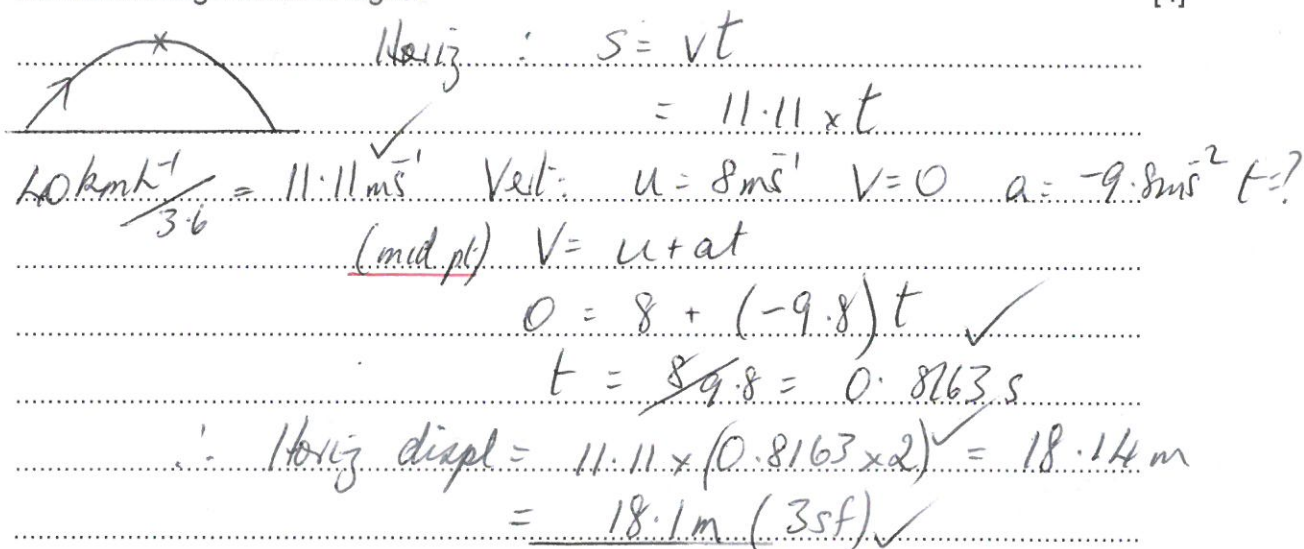 [4]
Horiz : s = vt
= 11.11 × t
40 kmh⁻¹/3.6 = 11.11 ms⁻¹ ✓ Vert: u = 8 ms⁻¹ V=0 a = -9.8 ms⁻² t=?
(mid pt) V = u + at
0 = 8 + (-9.8) t ✓
t = 8/9.8 = 0.8163 s
∴ Horiz displ = 11.11 × (0.8163 × 2) ✓ = 18.14 m
= 18.1 m (3sf) ✓